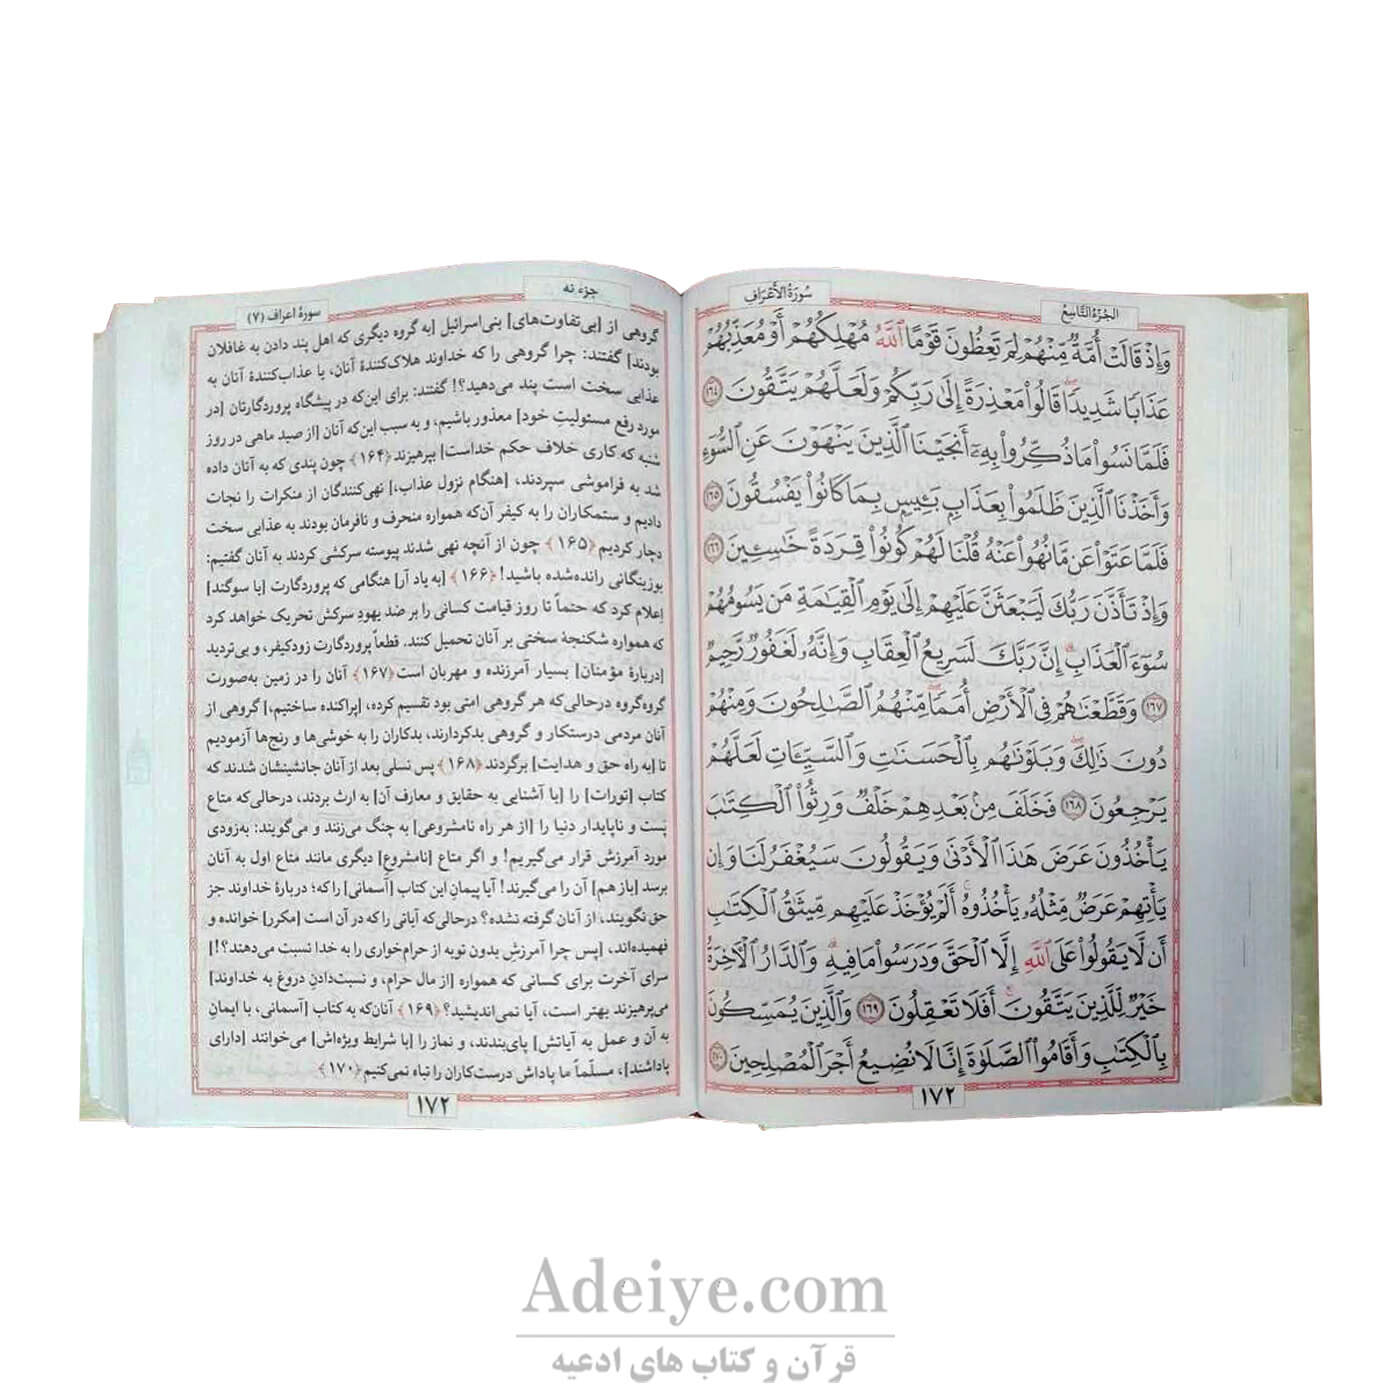 الجزء التاسع
سورة الأعراف
وَإِذْ قَالَتْ أُمَّةٌ مِّنْهُمْ لِمَ تَعِظُونَ قَوْمًا ٱللَّهُ مُهْلِكُهُمْ أَوْ مُعَذِّبُهُمْ
عَذَابًا شَدِيدًا ۖ قَالُوا۟ مَعْذِرَةً إِلَىٰ رَبِّكُمْ وَلَعَلَّهُمْ يَتَّقُونَ ١٦٤
فَلَمَّا نَسُوا۟ مَا ذُكِّرُوا۟ بِهِۦٓ أَنجَيْنَا ٱلَّذِينَ يَنْهَوْنَ عَنِ ٱلسُّوٓءِ
وَأَخَذْنَا ٱلَّذِينَ ظَلَمُوا۟ بِعَذَابٍۭ بَـِٔيسٍۭ بِمَا كَانُوا۟ يَفْسُقُونَ ١٦٥
فَلَمَّا عَتَوْا۟ عَن مَّا نُهُوا۟ عَنْهُ قُلْنَا لَهُمْ كُونُوا۟ قِرَدَةً خَـٰسِـِٔينَ ١٦٦
وَإِذْ تَأَذَّنَ رَبُّكَ لَيَبْعَثَنَّ عَلَيْهِمْ إِلَىٰ يَوْمِ ٱلْقِيَـٰمَةِ مَن يَسُومُهُمْ
سُوٓءَ ٱلْعَذَابِ ۗ إِنَّ رَبَّكَ لَسَرِيعُ ٱلْعِقَابِ ۖ وَإِنَّهُۥ لَغَفُورٌ رَّحِيمٌ
١٦٧ وَقَطَّعْنَـٰهُمْ فِى ٱلْأَرْضِ أُمَمًا ۖ مِّنْهُمُ ٱلصَّـٰلِحُونَ وَمِنْهُمْ
دُونَ ذَٰلِكَ ۖ وَبَلَوْنَـٰهُم بِٱلْحَسَنَـٰتِ وَٱلسَّيِّـَٔاتِ لَعَلَّهُمْ
يَرْجِعُونَ ١٦٨ فَخَلَفَ مِنۢ بَعْدِهِمْ خَلْفٌ وَرِثُوا۟ ٱلْكِتَـٰبَ
يَأْخُذُونَ عَرَضَ هَـٰذَا ٱلْأَدْنَىٰ وَيَقُولُونَ سَيُغْفَرُ لَنَا وَإِن
يَأْتِهِمْ عَرَضٌ مِّثْلُهُۥ يَأْخُذُوهُ ۚ أَلَمْ يُؤْخَذْ عَلَيْهِم مِّيثَـٰقُ ٱلْكِتَـٰبِ
أَن لَّا يَقُولُوا۟ عَلَى ٱللَّهِ إِلَّا ٱلْحَقَّ وَدَرَسُوا۟ مَا فِيهِ ۗ وَٱلدَّارُ ٱلْـَٔاخِرَةُ
خَيْرٌ لِّلَّذِينَ يَتَّقُونَ ۗ أَفَلَا تَعْقِلُونَ ١٦٩ وَٱلَّذِينَ يُمَسِّكُونَ
بِٱلْكِتَـٰبِ وَأَقَامُوا۟ ٱلصَّلَوٰةَ إِنَّا لَا نُضِيعُ أَجْرَ ٱلْمُصْلِحِينَ ١٧٠
١٧٢
جزء نه
سورهٔ اعراف (۷)
گروهی از [بی‌تفاوت‌های] بنی‌اسرائیل [به گروه دیگری که اهل پند دادن به غافلان
بودند] گفتند: چرا گروهی را که خداوند هلاک‌کنندهٔ آنان، یا عذاب‌کنندهٔ آنان به
عذابی سخت است پند می‌دهید؟! گفتند: برای این‌که در پیشگاه پروردگارتان [در
مورد رفع مسئولیتِ خود] معذور باشیم، و به سبب این‌که آنان [از صید ماهی در روز
شنبه که کاری خلاف حکم خداست] بپرهیزند ﴿۱۶۴﴾ چون پندی که به آنان داده
شد به فراموشی سپردند، [هنگام نزول عذاب،] نهی‌کنندگان از منکرات را نجات
دادیم و ستمکاران را به کیفر آن‌که همواره منحرف و نافرمان بودند به عذابی سخت
دچار کردیم ﴿۱۶۵﴾ چون از آنچه نهی شدند پیوسته سرکشی کردند به آنان گفتیم:
بوزینگانی رانده‌شده باشید! ﴿۱۶۶﴾ [به یاد آر] هنگامی که پروردگارت [با سوگند]
اِعلام کرد که حتماً تا روز قیامت کسانی را بر ضد یهودِ سرکش تحریک خواهد کرد
که همواره شکنجهٔ سختی بر آنان تحمیل کنند. قطعاً پروردگارت زودکیفر، و بی‌تردید
[دربارهٔ مؤمنان] بسیار آمرزنده و مهربان است ﴿۱۶۷﴾ آنان را در زمین به‌صورت
گروه‌گروه درحالی‌که هر گروهی امتی بود تقسیم کرده، [پراکنده ساختیم،] گروهی از
آنان مردمی درستکار و گروهی بدکردارند، بدکاران را به خوشی‌ها و رنج‌ها آزمودیم
تا [به راه حق و هدایت] برگردند ﴿۱۶۸﴾ پس نسلی بعد از آنان جانشینشان شدند که
کتاب [تورات] را [با آشنایی به حقایق و معارف آن] به ارث بردند، درحالی‌که متاع
پَست و ناپایدار دنیا را [از هر راه نامشروعی] به چنگ می‌زنند و می‌گویند: به‌زودی
مورد آمرزش قرار می‌گیریم! و اگر متاع [نامشروعِ] دیگری مانند متاع اول به آنان
برسد [باز هم] آن را می‌گیرند! آیا پیمانِ این کتاب [آسمانی] را که؛ دربارهٔ خداوند جز
حق نگویند، از آنان گرفته نشده؟ درحالی‌که آیاتی را که در آن است [مکرر] خوانده و
فهمیده‌اند، [پس چرا آمرزشِ بدون توبه از حرام‌خواری را به خدا نسبت می‌دهند؟!]
سرای آخرت برای کسانی که همواره [از مال حرام، و نسبت‌دادنِ دروغ به خداوند]
می‌پرهیزند بهتر است، آیا نمی‌اندیشید؟ ﴿۱۶۹﴾ آنان‌که به کتاب [آسمانی، با ایمانِ
به آن و عمل به آیاتش] پای‌بندند، و نماز را [با شرایط ویژه‌اش] می‌خوانند [دارای
پاداشند]، مسلّماً ما پاداش درست‌کاران را تباه نمی‌کنیم ﴿۱۷۰﴾
۱۷۲
Adeiye.com
قرآن و کتاب های ادعیه